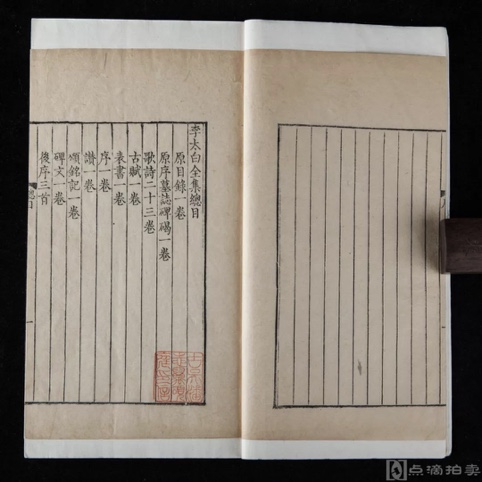 李太白全集總目
原目錄一卷
原序墓誌碑碣一卷
歌詩二十三卷
古賦一卷
表書一卷
序一卷
讚一卷
頌銘記一卷
碑文一卷
後序三首
總目
一
点滴拍卖